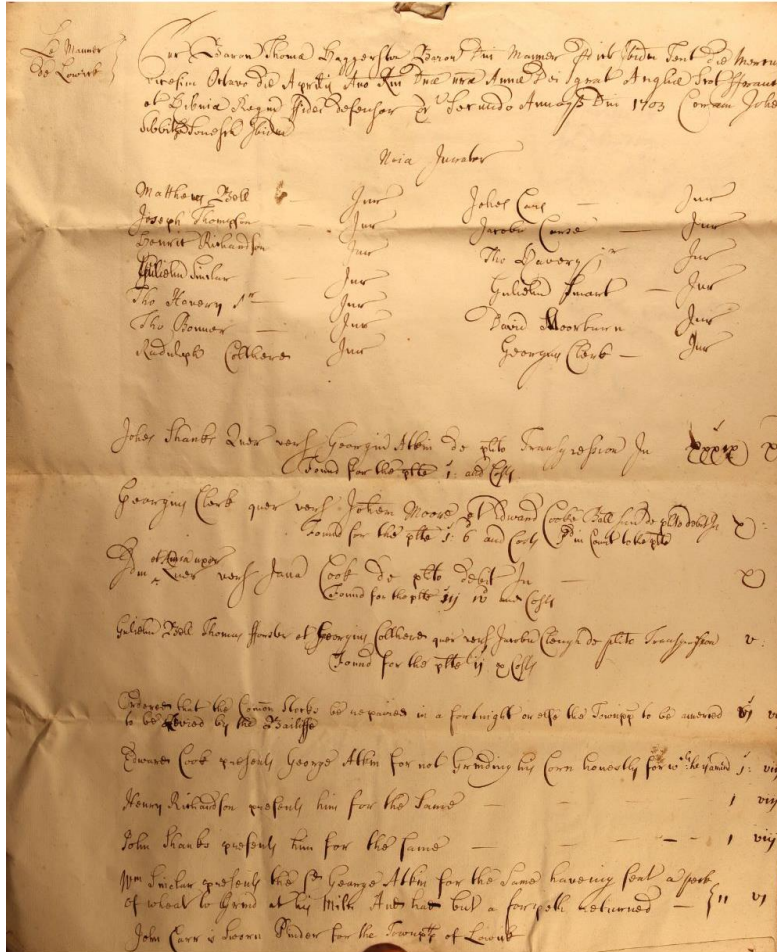 Le Manner
de Lowick
Cur Baron Thoma Haggersto Baront Dni Manner ibidm Tent die Mercur
vicesim Octavo die Aprilis Ano Rni Dnæ nræ Anna Dei grat Anglie Scot ffranc
et Hibnia Regnæ ffidei defensor &c Secundo Annoq Dni 1703 Coram Johe
ibidm
Noia Jurator
Matthew Bell — Jur
Joseph Thompson Jur
Henric Richardson Jur
Gulielm Sinclar Jur
Tho Jur
Tho Bonner — Jur
Radulph Collhere Jur
Johes Carr — Jur
Jacobu Jur
Tho Jur
Gulielm Smart — Jur
David Moorburn Jur
Georgius Clerk — Jur
Johes Shanks Quer vers Georgiu Atkin de plito Transgression In xxxix
Found for the plte 1s: and Costs
Georgius Clerk quer vers Johem Moore et Edward Cooke Ball de plito debit In x:
Found for the plte 1s: 6 and Costs pd in Court to the plte
Idm et uxor Quer vers Jana Cook de plito debit In — x
Found for the plte iij iv and Costs
Gulielm Bell Thomas fforster et Georgius Collhere quer vers Jacobu Clough de plito Transgression v:
Found for the plte ij x Costs
Ordered that the Comon Stocks be repaired in a fortnight or else the Townpp to be amerced vj
to be levied by the Bailiffe
Edward Cook presents George Atkin for not Grinding his Corn honestly for wch: he is amcd j: viij
Henry Richardson presents him for the Same — — — 1 viij
John Shanks presents him for the Same — — — 1 viij
Wm Sinclar presents the sd George Atkin for the Same haveing sent a peck
of wheat to Grind at his Miln And had but a forpeth returned — 11 vj
John Carr is Sworn Pinder for the Townpp of Lowick